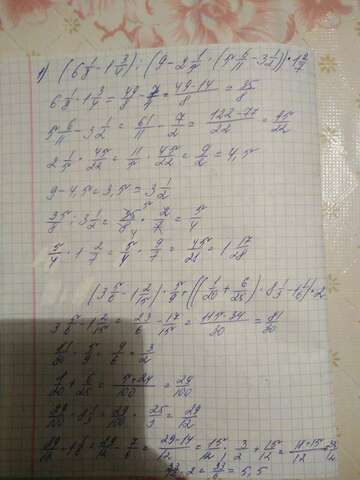 1) (6 1/8 - 1 3/4) : (9 - 2 1/5 · (5 6/11 - 3 1/2)) · 1 2/7
6 1/8 - 1 3/4 = 49/8 - 7/4 = (49-14)/8 = 35/8
5 6/11 - 3 1/2 = 61/11 - 7/2 = (122-77)/22 = 45/22
2 1/5 · 45/22 = 11/5 · 45/22 = 9/2 = 4,5
9 - 4,5 = 3,5 = 3 1/2
35/8 : 3 1/2 = 35/8 · 2/7 = 5/4
5/4 · 1 2/7 = 5/4 · 9/7 = 45/28 = 1 17/28
(3 5/6 - 1 2/15) · 5/9 + ((1/20 + 6/25) · 8 1/3 - 1 1/6) · 2
3 5/6 - 1 2/15 = 23/6 - 17/15 = (115-34)/30 = 81/30
81/30 · 5/9 = 9/6 = 3/2
1/20 + 6/25 = (5+24)/100 = 29/100
29/100 · 8 1/3 = 29/100 · 25/3 = 29/12
29/12 - 1 1/6 = 29/12 - 7/6 = (29-14)/12 = 15/12; 3/2 + 15/12 = (18+15)/12 = 33/12
33/12 · 2 = 33/6 = 5,5